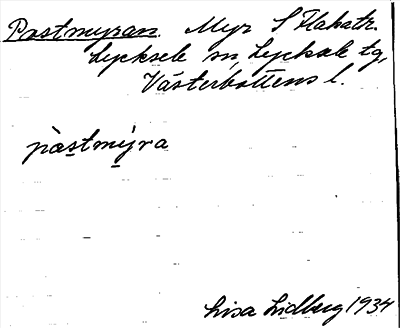 Postmyran. Myr S Flakatr.
Lycksele sn, Lycksele tg,
Västerbottens l.
pàstmýra
Lisa Lidberg 1934